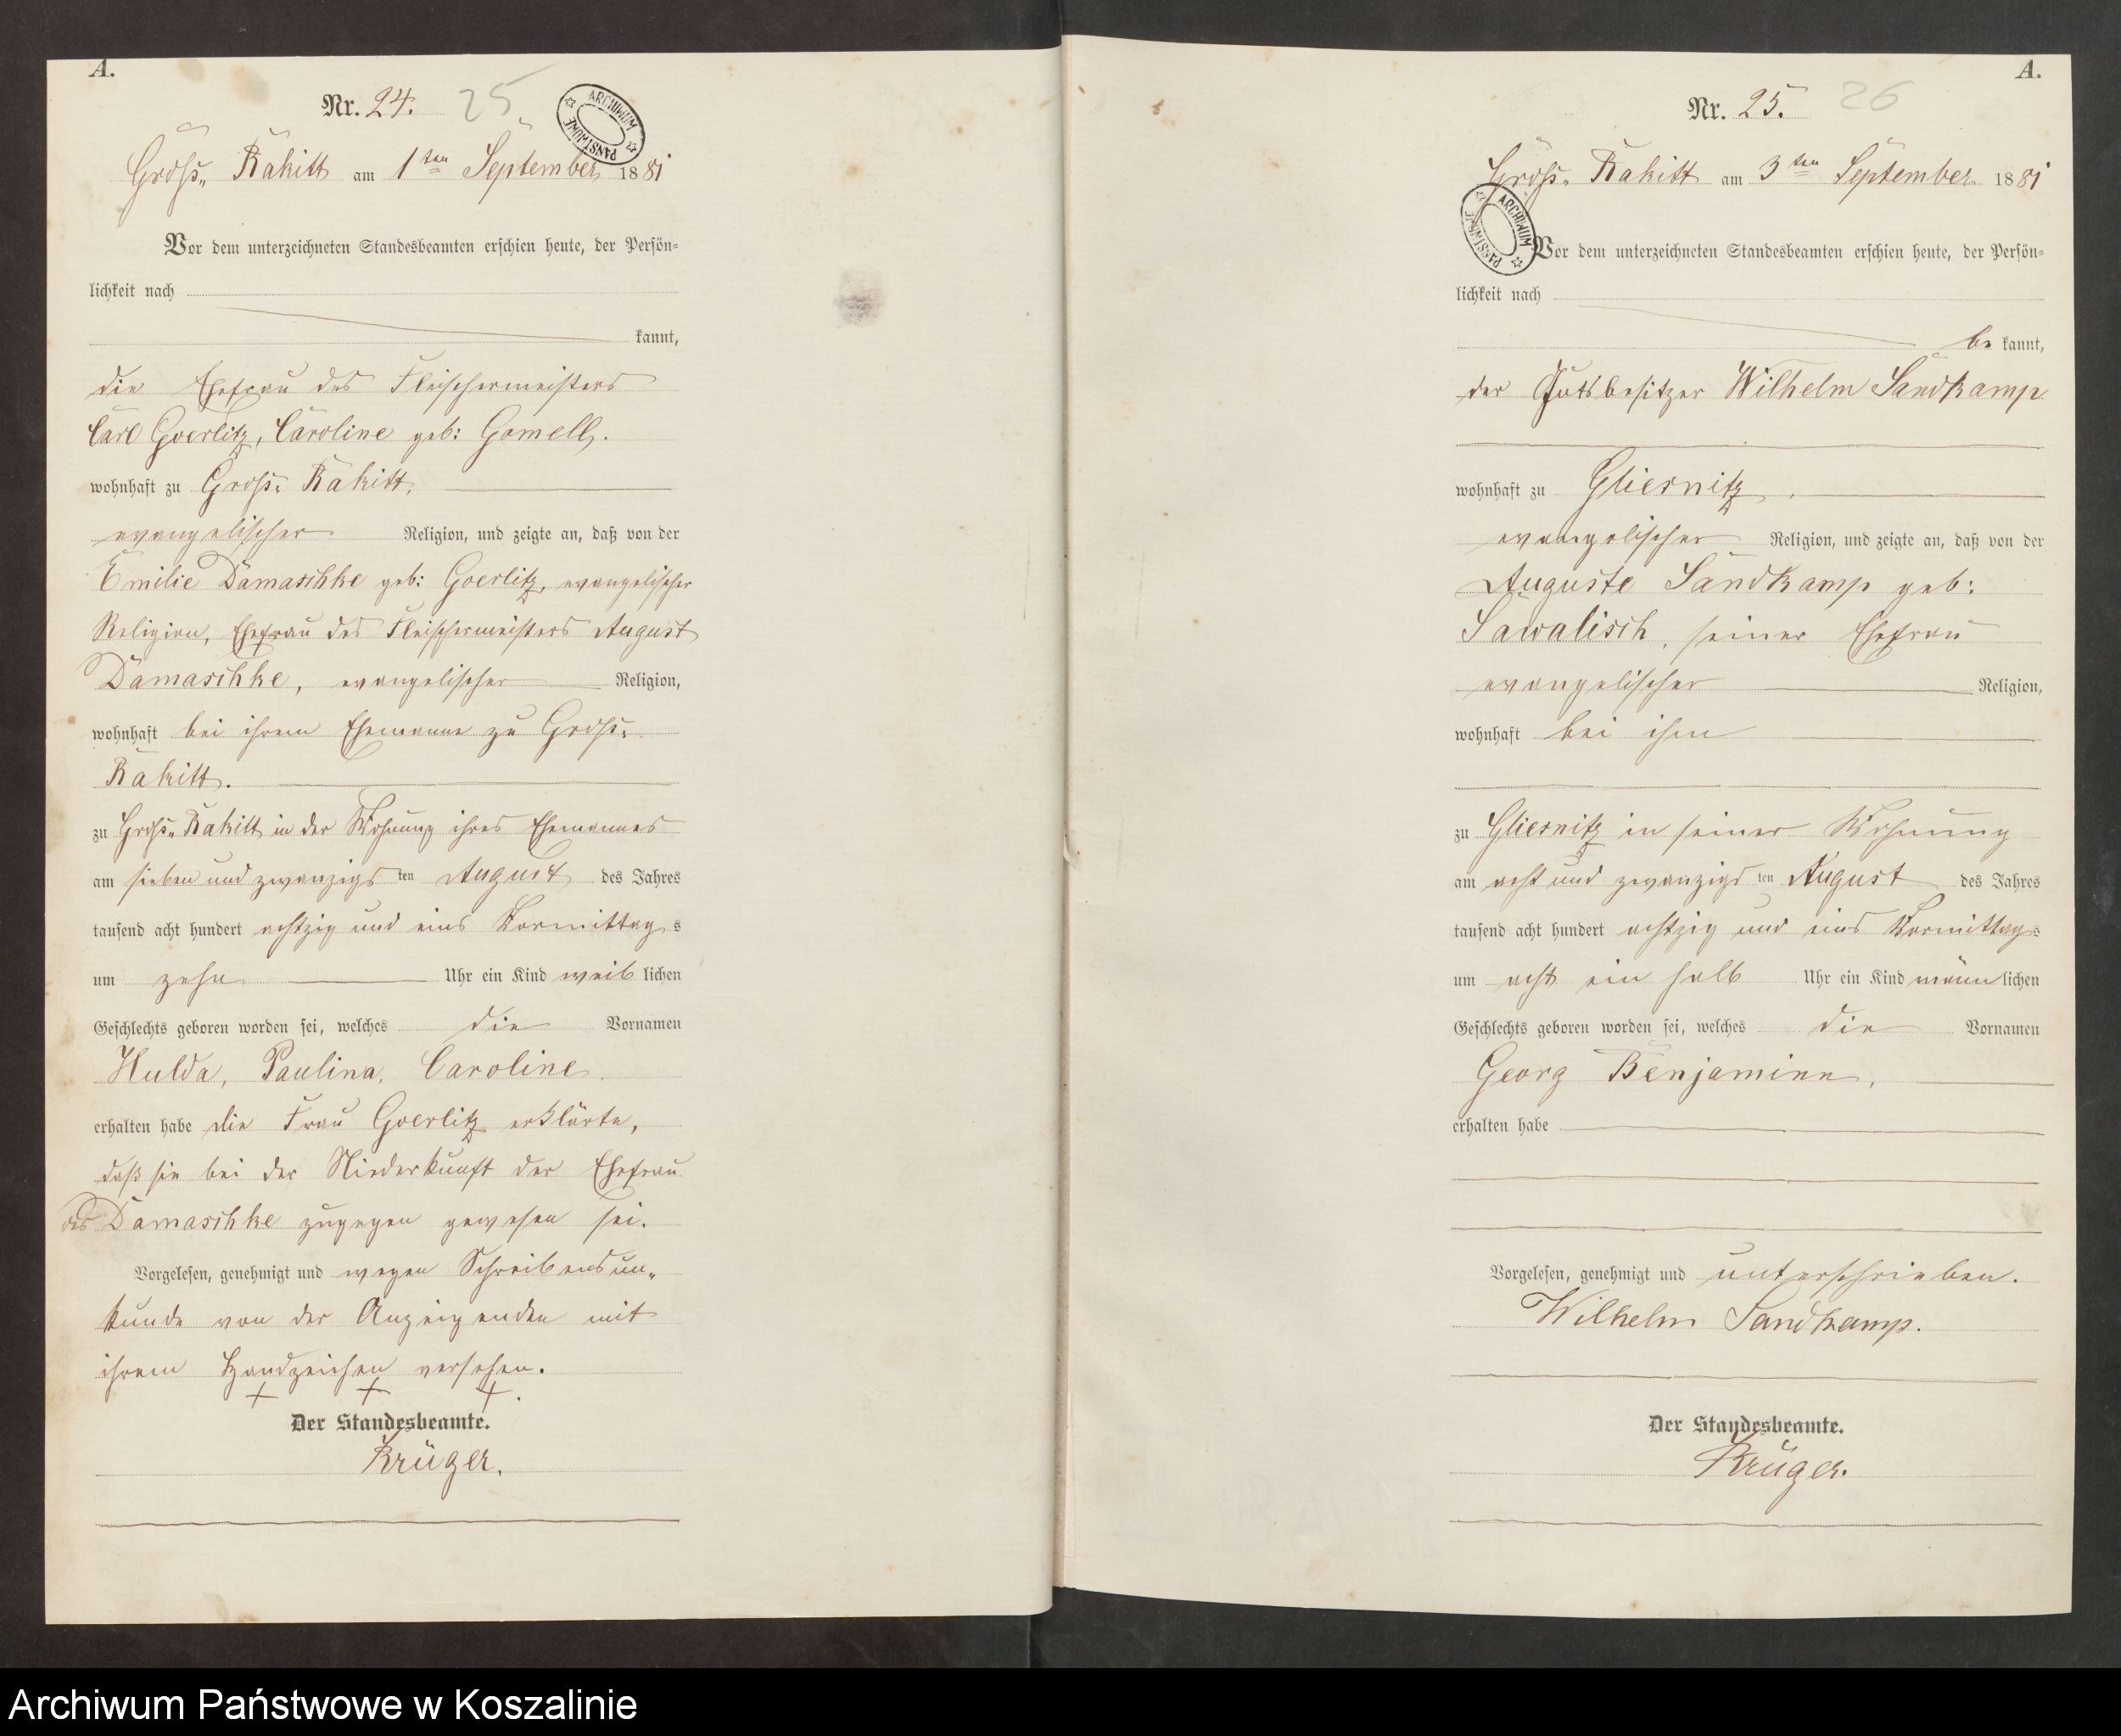 A.
Nr. 24.
25
ARCHIWUM PAŃSTWOWE
Groß„ Rakitt am 1ten September 1881
Vor dem unterzeichneten Standesbeamten erschien heute, der Persön=
lichkeit nach
kannt,
die Ehefrau des Fleischermeisters
Carl Goerlitz, Caroline geb: Gomell.
wohnhaft zu Groß„ Rakitt,
evangelischer Religion, und zeigte an, daß von der
Emilie Damaschke geb: Goerlitz, evangelischer
Religion, Ehefrau des Fleischermeisters August
Damaschke, evangelischer Religion,
wohnhaft bei ihrem Ehemanne zu Groß„
Rakitt.
zu Groß„ Rakitt in der Wohnung ihres Ehemannes
am sieben und zwanzigsten August des Jahres
tausend acht hundert achtzig und eins Vormittags
um zehn Uhr ein Kind weiblichen
Geschlechts geboren worden sei, welches die Vornamen
Hulda, Paulina, Caroline.
erhalten habe die Frau Goerlitz erklärte,
daß sie bei der Niederkunft der Ehefrau
des Damaschke zugegen gewesen sei.
Vorgelesen, genehmigt und wegen Schreibensun„
kunde von der Anzeigenden mit
ihrem Handzeichen versehen.
+ + +.
Der Standesbeamte.
Krüger.
A.
Nr. 25.
26
ARCHIWUM PAŃSTWOWE
Groß„ Rakitt am 3ten September 1881
Vor dem unterzeichneten Standesbeamten erschien heute, der Persön=
lichkeit nach
bekannt,
der Gutsbesitzer Wilhelm Sandkamp
wohnhaft zu Gliesnitz,
evangelischer Religion, und zeigte an, daß von der
Auguste Sandkamp geb:
Sawalisch, seiner Ehefrau
evangelischer Religion,
wohnhaft bei ihm
zu Gliesnitz in seiner Wohnung
am acht und zwanzigsten August des Jahres
tausend acht hundert achtzig und eins Vormittags
um acht ein halb Uhr ein Kind männlichen
Geschlechts geboren worden sei, welches die Vornamen
Georg Benjaminn,
erhalten habe
Vorgelesen, genehmigt und unterschrieben.
Wilhelm Sandkamp.
Der Standesbeamte.
Krüger.
Archiwum Państwowe w Koszalinie